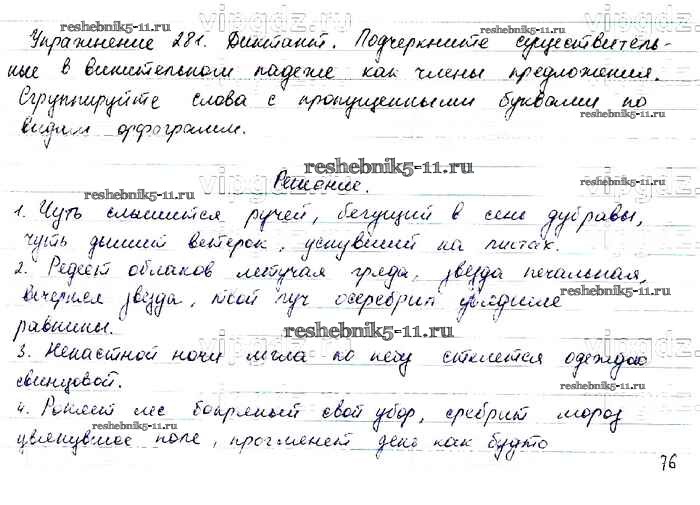 Упражнение 281. Диктант. Подчеркните существитель-
ные в винительном падеже как члены предложения.
Сгруппируйте слова с пропущенными буквами по
видам орфограмм.
Решение.
1. Чуть слышится ручей, бегущий в сень дубравы,
чуть дышит ветерок, уснувший на листах.
2. Редеет облаков летучая гряда, звезда печальная,
вечерняя звезда, твой луч осеребрил увядшие
равнины.
3. Ненастной ночи мгла по небу стелется одеждою
свинцовой.
4. Роняет лес багряный свой убор, сребрит мороз
увянувшее поле, проглянет день как будто
76
reshebnik5-11.ru
reshebnik5-11.ru
reshebnik5-11.ru
reshebnik5-11.ru
reshebnik5-11.ru
reshebnik5-11.ru
reshebnik5-11.ru
reshebnik5-11.ru
reshebnik5-11.ru